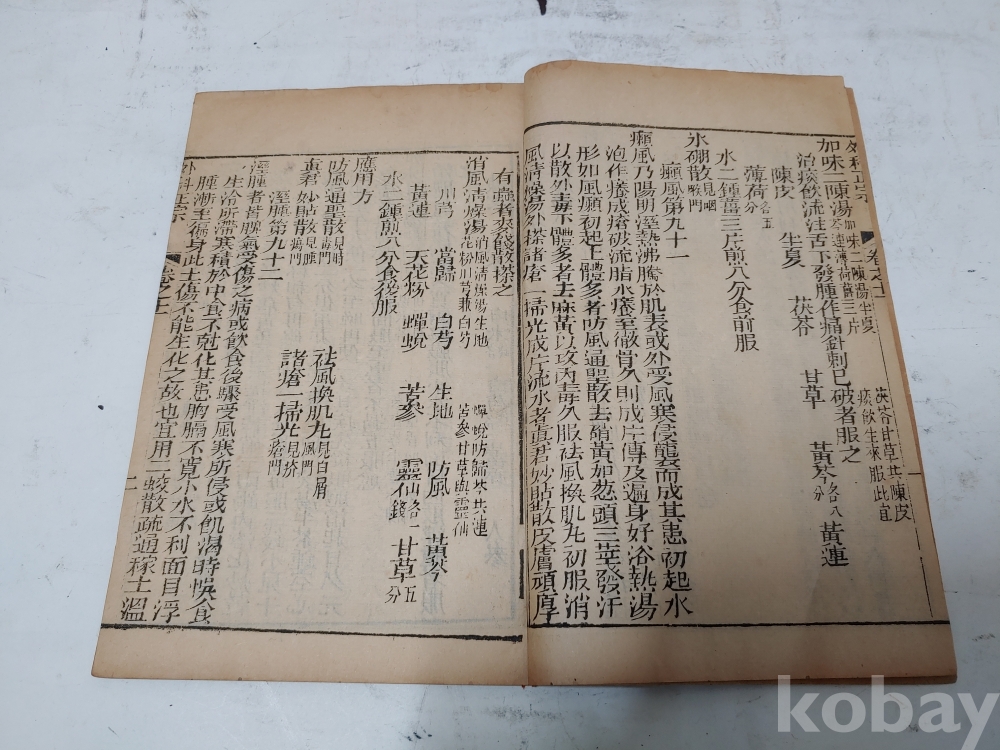 外科正宗 卷之十一
加味二陳湯 加味二陳湯生夏 茯苓甘草共陳皮 芩連薄荷薑三片 痰飲生來服此宜
治痰飲流注舌下發腫作痛針刺已破者服之
陳皮 生夏 茯苓 甘草 黃芩各八分 黃連
薄荷各五分
水二鍾薑三片煎八分食前服
氷硼散見咽喉門
癲風第九十一
癲風乃陽明溼熱沸騰於肌表或外受風寒侵襲而成其患初起水
泡作癢成瘡破流脂水癢至徹骨久則成片傳及遍身好浴熱湯
形如風癲初起上體多者防風通聖散去硝黃加葱頭三莖發汗
以散外毒下體多者去麻黃以攻內毒久服祛風換肌丸初服消
風清燥湯外搽諸瘡一掃光成片流水者真君妙貼散皮膚頑厚
有蟲者麥餞散搽之
消風清燥湯 消風清燥湯生地 蟬蛻防歸芩共連 花粉川芎兼白芍 苦參甘草與靈仙
川芎 當歸 白芍 生地 防風 黃芩
黃連 天花粉 蟬蛻 苦參 靈仙各一錢 甘草五分
水二鍾煎八分食後服
應用方
防風通聖散見時毒門 祛風換肌丸見白屑風門
真君妙貼散見腫瘍門 諸瘡一掃光見疥瘡門
溼腫第九十二
溼腫者皆脾氣受傷之病或飲食後驟受風寒所侵或飢渴時悞食
生冷所滯寒積於中食不剋化其患胸膈不寬小水不利面目浮
腫漸至傷身此土傷不能生化之故也宜用二蛟散疏通稼土溫
外科正宗 卷之十一 一